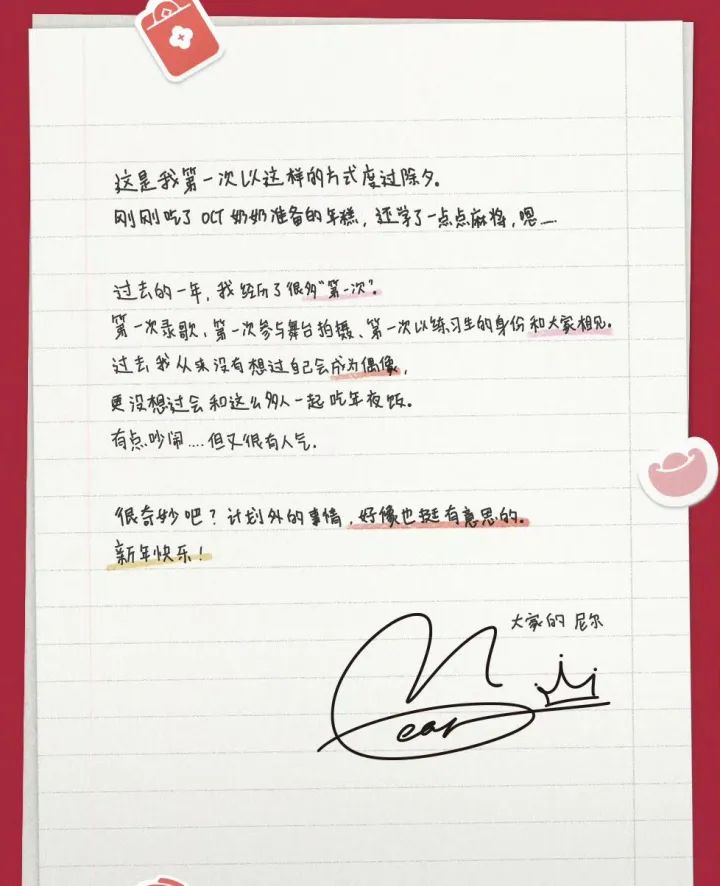 这是我第一次以这样的方式度过除夕。
刚刚吃了OCT奶奶准备的年糕，还学了一点点麻将，嗯……
过去的一年，我经历了很多“第一次”。
第一次录歌、第一次参与舞台拍摄、第一次以练习生的身份和大家相见。
过去我从来没有想过自己会成为偶像，
更没想过会和这么多人一起吃年夜饭。
有点吵闹....但又很有人气.
很奇妙吧？计划外的事情，好像也挺有意思的。
新年快乐！
大家的 尼尔
Near